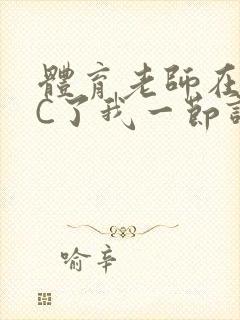 體育老師在
C了我一節
喻辛